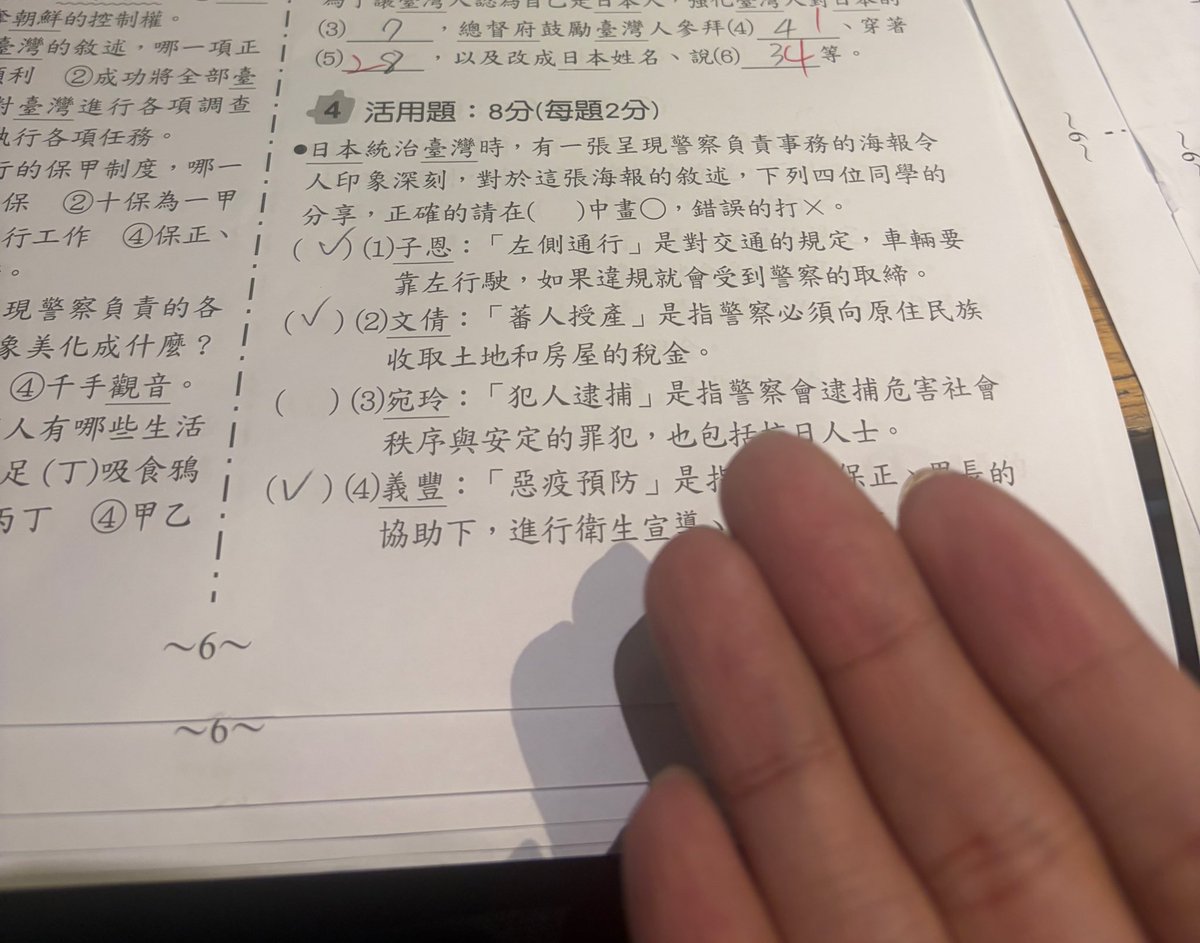 朝鮮的控制權。
臺灣的敘述，哪一項正
順利　②成功將全部臺
對臺灣進行各項調查
執行各項任務。
行的保甲制度，哪一
保　②十保為一甲
行工作　④保正、
。
現警察負責的各
象美化成什麼？
④千手觀音。
人有哪些生活
足 (丁)吸食鴉
丙丁　④甲乙
～6～
～6～
(3) 7 ，總督府鼓勵臺灣人參拜(4) 41 、穿著
(5) 28 ，以及改成日本姓名、說(6) 34 等。
4 活用題：8分(每題2分)
●日本統治臺灣時，有一張呈現警察負責事務的海報令
人印象深刻，對於這張海報的敘述，下列四位同學的
分享，正確的請在(　)中畫○，錯誤的打×。
(✓)(1)子恩：「左側通行」是對交通的規定，車輛要
靠左行駛，如果違規就會受到警察的取締。
(✓)(2)文倩：「蕃人授產」是指警察必須向原住民族
收取土地和房屋的稅金。
(　)(3)宛玲：「犯人逮捕」是指警察會逮捕危害社會
秩序與安定的罪犯，也包括抗日人士。
(✓)(4)義豐：「惡疫預防」是指 保正、甲長的
協助下，進行衛生宣導、
～6～